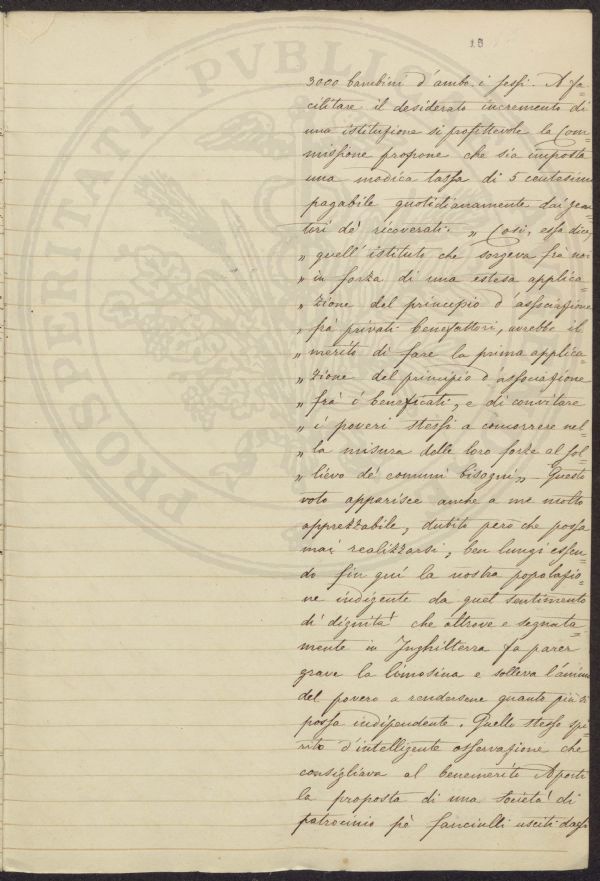 15
PROSPERITATI PVBLICAE
3000 bambini d'ambo i sessi. A fa=
cilitare il desiderato incremento di
una istituzione si profittevole la Com=
missione propone che sia imposta
una modica tassa di 5 centesimi
pagabile quotidianamente dai geni=
tori de' ricoverati. „ Così, essa dice,
„ quell'istituto che sorgeva frà noi
„ in forza di una estesa applica=
„ zione del principio d'associazione
„ frà privati benefattori, avrebbe il
„ merito di fare la prima applica=
„ zione del principio d'associazione
„ frà i beneficati, e di convitare
„ i poveri stessi a concorrere nel=
„ la misura delle loro forze al sol=
„ lievo de' comuni bisogni „ Questo
voto apparisce anche a me molto
apprezzabile, dubito però che possa
mai realizzarsi, ben lungi essen=
do fin quì la nostra popolazio=
ne indigente da quel sentimento
di dignità che altrove e segnata=
mente in Inghilterra fa parer
grave la limosina e solleva l'animo
del povero a rendersene quanto più si
possa indipendente. Quello stesso spi=
rito d'intelligente osservazione che
consigliava al benemerito Aporti
la proposta di una Società di
patrocinio pè fanciulli usciti dagli